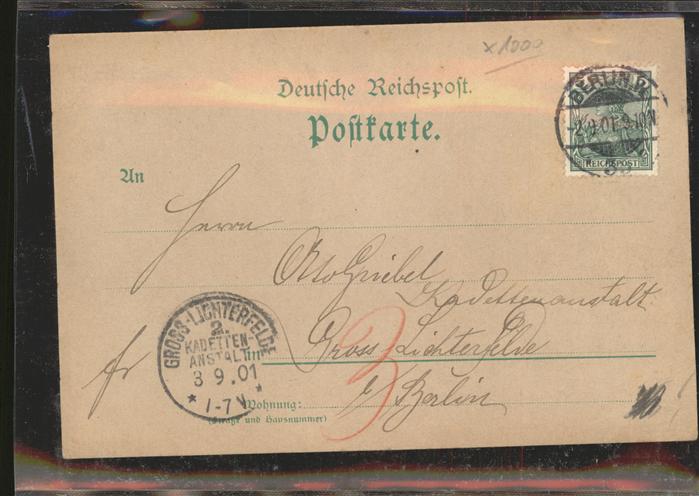 x 1000
Deutsche Reichspost.
Postkarte.
BERLIN
-2.9.01.9-10N
REICHSPOST
An
Herrn
Otto Griebel
Kadettenanstalt
GROSS-LICHTERFELDE
2.
KADETTEN-
ANSTALT
3 9.01
* 1-7V. *
in
Gross Lichterfelde
3
fr
b/Berlin
Wohnung:
(Straße und Hausnummer)